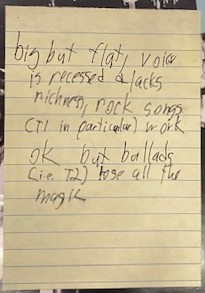 big but flat, voice
is recessed & lacks
richness, rock songs
(T1 in particular) work
OK but ballads
(i.e. T2) lose all the
magic